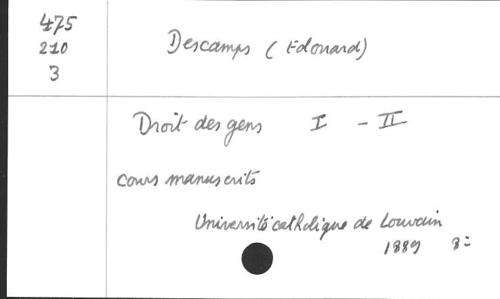 475
210
3
Descamps (Edouard)
Droit des gens I - II
cours manuscrits
Université catholique de Louvain
1889 8=